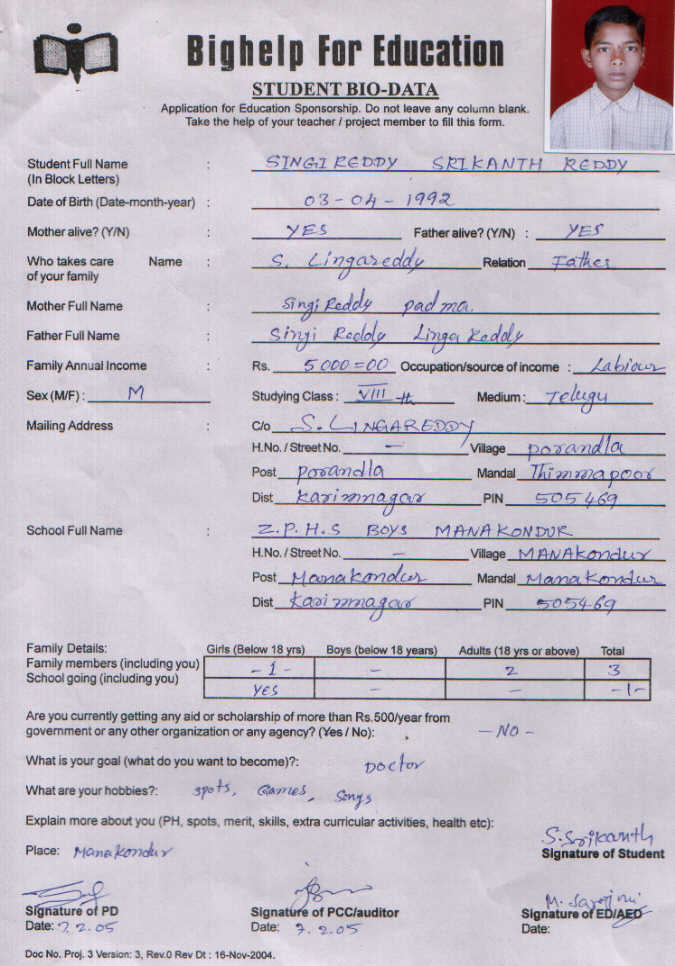 Bighelp For Education
STUDENT BIO-DATA
Application for Education Sponsorship. Do not leave any column blank.
Take the help of your teacher / project member to fill this form.
Student Full Name : SINGIREDDY SRIKANTH REDDY
(In Block Letters)
Date of Birth (Date-month-year) : 03-04-1992
Mother alive? (Y/N) : YES Father alive? (Y/N) : YES
Who takes care Name : S. Lingareddy Relation Father
of your family
Mother Full Name : Singi Reddy padma.
Father Full Name : Singi Reddy Linga Reddy
Family Annual Income : Rs. 5000=00 Occupation/source of income : Labiour
Sex (M/F) : M Studying Class : VIII th Medium : Telugu
Mailing Address : C/o S. LINGAREDDY
H.No. / Street No. - Village porandla
Post porandla Mandal Thimmapoor
Dist karimnagar PIN 505469
School Full Name : Z.P.H.S BOYS MANAKONDUR
H.No. / Street No. - Village MANAkondur
Post Manakondur Mandal Manakondur
Dist karimnagar PIN 505469
Family Details: Girls (Below 18 yrs) Boys (below 18 years) Adults (18 yrs or above) Total
Family members (including you) -1- - 2 3
School going (including you) YES - - -1-
Are you currently getting any aid or scholarship of more than Rs.500/year from
government or any other organization or any agency? (Yes / No): -NO-
What is your goal (what do you want to become)?: Doctor
What are your hobbies?: spots, Games, Songs
Explain more about you (PH, spots, merit, skills, extra curricular activities, health etc):
S. Srikanth
Place: Manakondur Signature of Student
M. Sarojini
Signature of PD Signature of PCC/auditor Signature of ED/AED
Date: 7.2.05 Date: 7.2.05 Date:
Doc No. Proj. 3 Version: 3, Rev.0 Rev Dt : 16-Nov-2004.